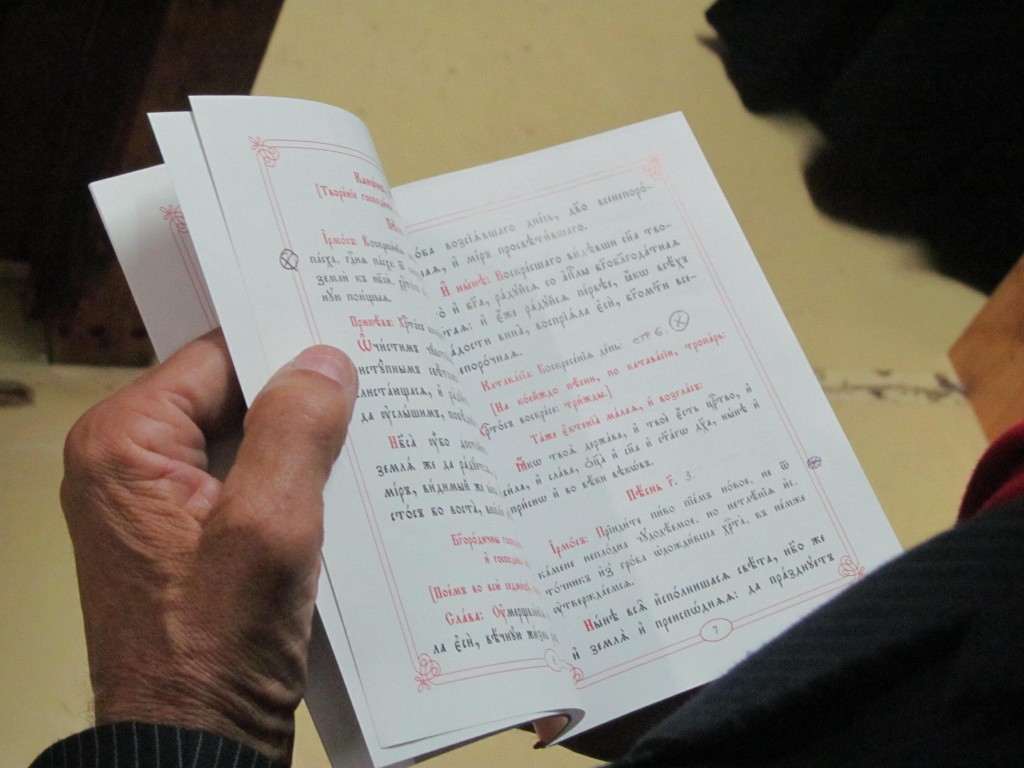 [Творе́нїе
І҆рмо́съ: Воскресе́нїѧ
па́сха, гдⷭ҇нѧ па́сха:
землѝ къ нб҃сѝ, хрⷭ҇то́съ
Припѣ́въ: Хрⷭ҇то́съ
Ѡ҆чи́стимъ
да ᲂу҆слы́шимъ,
Нб҃са̀ ᲂу҆́бѡ
землѧ́ же да ра́дꙋетсѧ,
мі́ръ, ви́димый же
сто́съ бо воста̀,
Сла́ва: Оу҆мерщвле́нїѧ
ла є҆сѝ, вѣ́чнꙋю жи́знь
гро́ба возсїѧ́вшаго дне́сь, дв҃о всенепоро́-
наѧ, и҆ мі́ръ просвѣти́вшаго.
И҆ ны́нѣ: Воскре́сшаго ви́дѣвши сн҃а твоего̀
и҆ бг҃а, ра́дꙋйсѧ со а҆пⷭ҇лы бг҃облагода́тнаѧ
чⷭ҇таѧ: и҆ є҆́же ра́дꙋйсѧ пе́рвѣе, ꙗ҆́кѡ всѣ́хъ
ра́дости вина̀, воспрїѧ́ла є҆сѝ, бг҃ома́ти все-
непоро́чнаѧ.
Катава́сїа: Воскресе́нїѧ де́нь: стр 6.
[На ко́ейждо пѣ́сни, по катава́сїи, тропа́рь:
Хрⷭ҇то́съ воскре́се: три́жды.]
Та́же є҆ктенїа̀ ма́лаѧ, и҆ возгла́съ:
Ꙗ҆́кѡ твоѧ̀ держа́ва, и҆ твоѐ є҆́сть црⷭ҇тво, и҆
си́ла, и҆ сла́ва, ѻ҆ц҃а̀ и҆ сн҃а и҆ ст҃а́гѡ дх҃а, ны́нѣ и҆
при́снѡ и҆ во вѣ́ки вѣкѡ́въ.
Пѣ́снь г҃. 3.
І҆рмо́съ: Прїиди́те пи́во пїе́мъ но́вое, не ѿ
ка́мене непло́дна чꙋдодѣ́емое, но нетлѣ́нїѧ и҆с-
то́чникъ и҆з̾ гро́ба ѡ҆дожди́вша хрⷭ҇та̀, въ не́мже
ᲂу҆твержда́емсѧ.
Ны́нѣ всѧ̑ и҆спо́лнишасѧ свѣ́та, нб҃о же
и҆ землѧ̀ и҆ преиспѡ́днѧѧ: да пра́зднꙋетъ
7